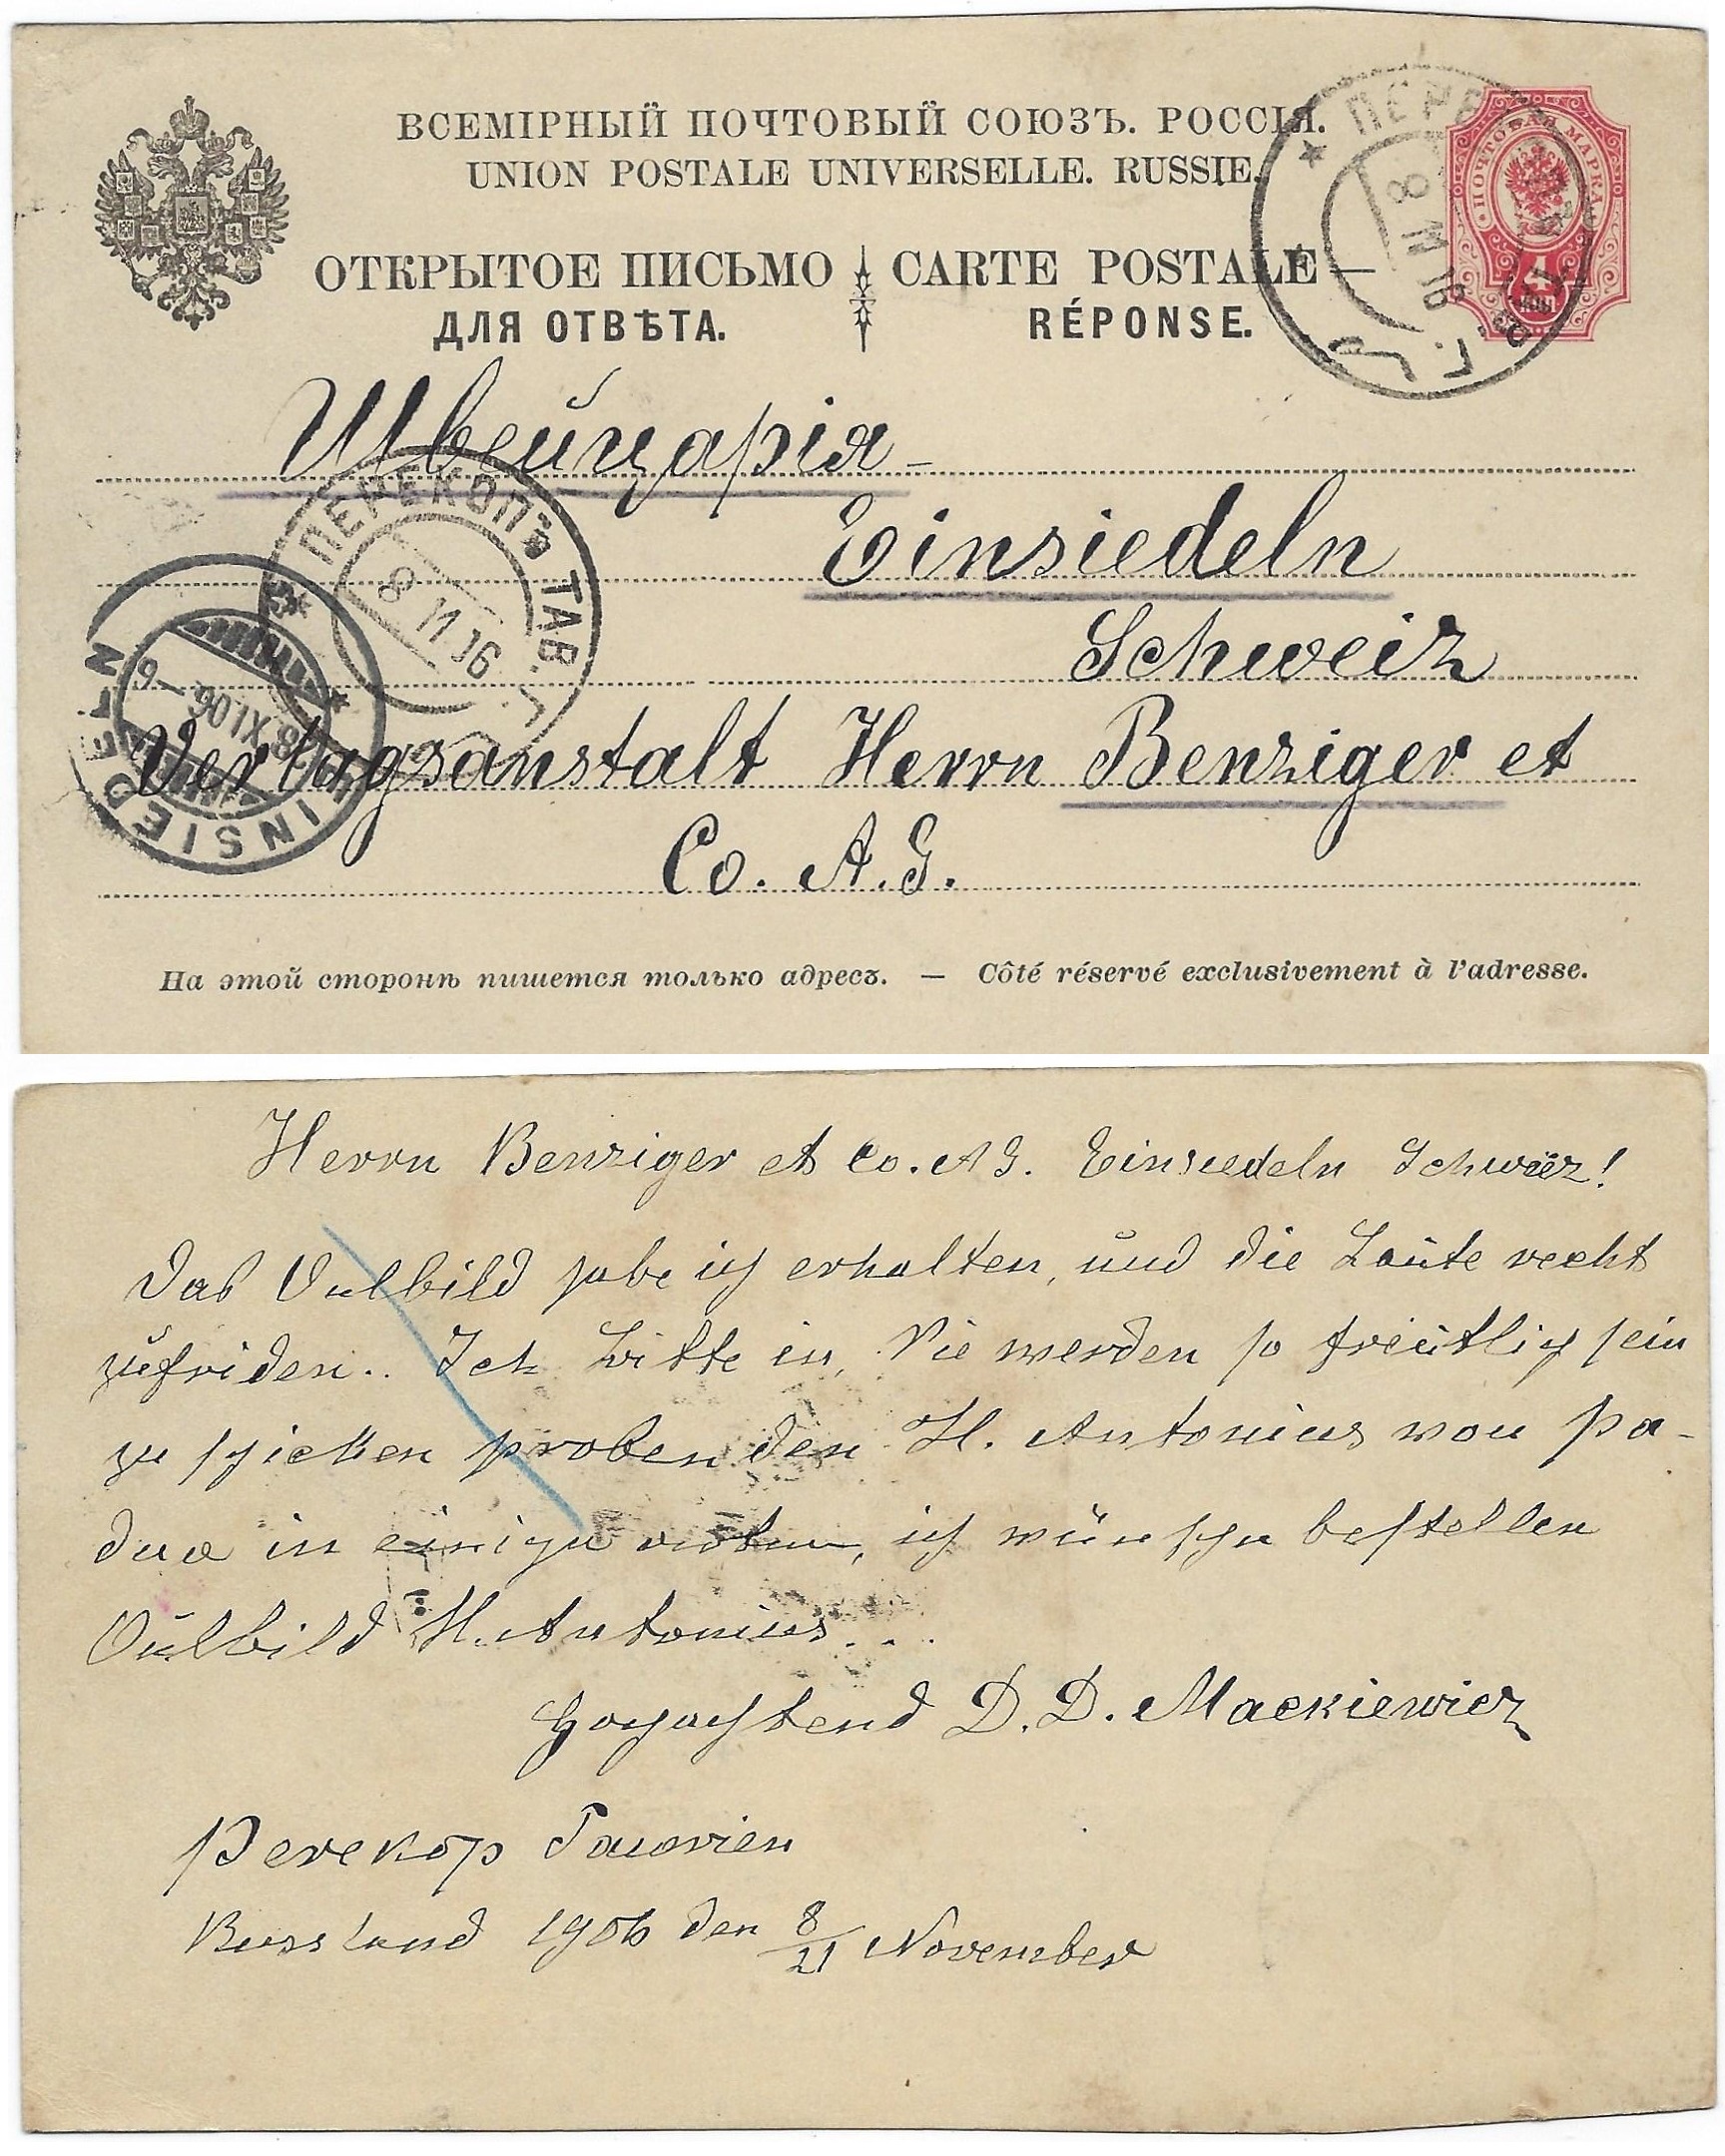 ВСЕМІРНЫЙ ПОЧТОВЫЙ СОЮЗЪ. РОССІЯ.
UNION POSTALE UNIVERSELLE. RUSSIE.
ОТКРЫТОЕ ПИСЬМО CARTE POSTALE
ДЛЯ ОТВѢТА. RÉPONSE.
ПОЧТОВАЯ МАРКА
4
Швейцарія
ПЕРЕКОПЪ ТАВ. Г.
8 11 06
Einsiedeln
Schweiz
Verlagsanstalt Herrn Benziger et
Co. A.G.
EINSIEDELN
На этой сторонѣ пишется только адресъ. — Côté réservé exclusivement à l'adresse.
Herrn Benziger et Co. A G. Einsiedeln Schweiz!
Das Oulbild habe ich erhalten, und die Leute recht
zufriden.. Ich bitte in, Sie werden so freutlich sein
zu schicken proben den H. Antonius von Pa-
dua in einige, ich wünsche bestellen
Oulbild H. Antonius...
Hochachtend D. D. Mackiewicz
Perekop Taurien
Russland 1906 den 8/21 November